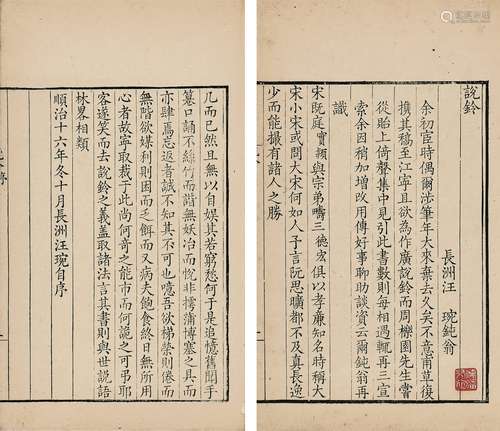 說鈴
長洲汪 琬鈍翁
余初宦時偶爾涉筆年大來棄去久矣不意甫草復
攜其稿至江寧且欲為作廣說鈴而周櫟園先生嘗
從貽上倚聲集中見引此書數則每相過輒再三宣
索余因稍加增改用傳好事聊助談資云爾鈍翁再
識
宋既庭實穎與宗弟疇三德宏俱以孝廉知名時稱大
宋小宋或問大宋何如人予言阮思曠都不及真長逸
少而能撮有諸人之勝
几而已然且無以自娛其若窮愁何于是追憶舊聞手
纂口誦不絲竹而諧無妖冶而悅非摴蒲博塞之具而
亦肆焉忘返者誠不知其不可也噫吾欲梯榮則倦而
無階欲媒利則困而乏餌而又病夫飽食終日無所用
心者故寧取裁于此尚何奇之能市而何詭之可弔耶
客遂笑而去說鈴之義蓋取諸法言其書則與世說語
林畧相類
順治十六年冬十月長洲汪琬自序